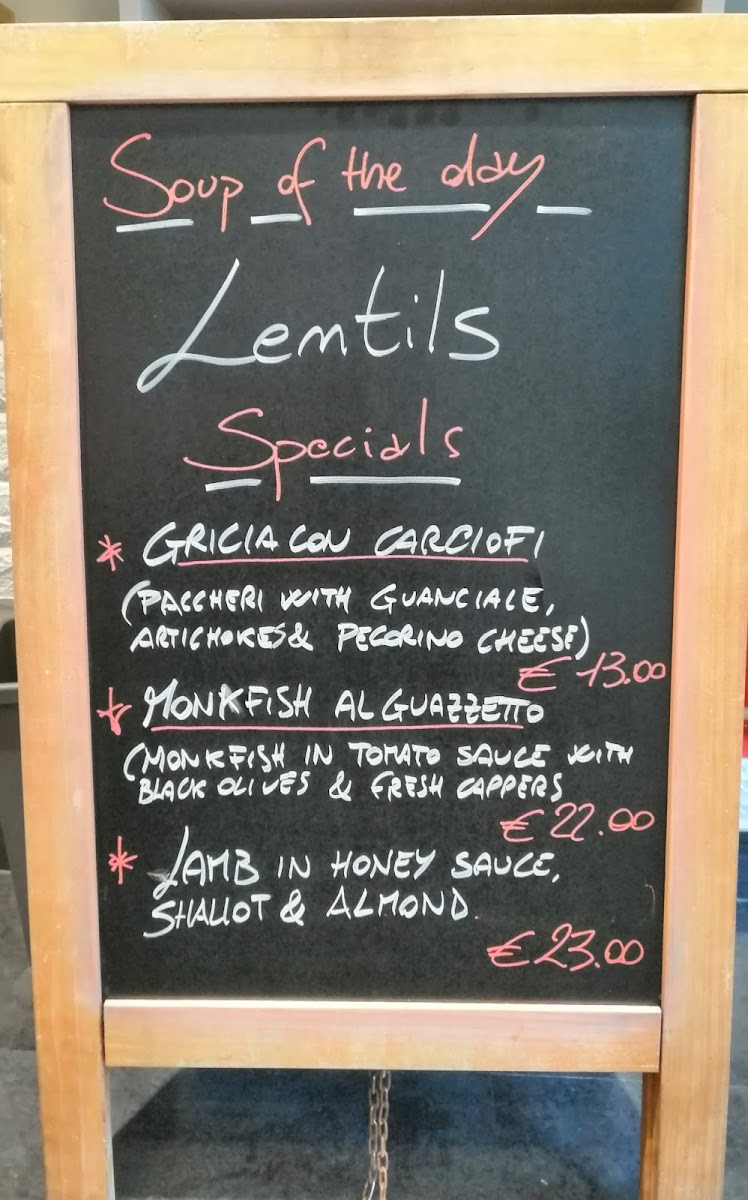 Soup of the day
Lentils
Specials
* GRICIA CON CARCIOFI
(PACCHERI WITH GUANCIALE,
ARTICHOKES & PECORINO CHEESE)
€ 13.00
* MONKFISH AL GUAZZETTO
(MONKFISH IN TOMATO SAUCE WITH
BLACK OLIVES & FRESH CAPPERS
€ 22.00
* LAMB IN HONEY SAUCE,
SHALLOT & ALMOND.
€ 23.00